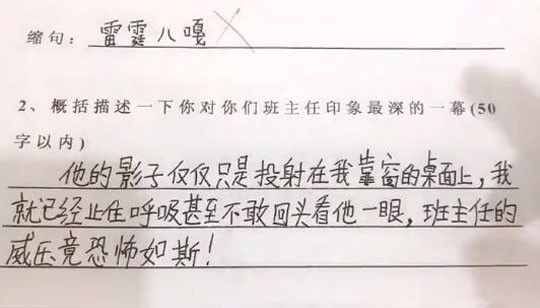 缩句：雷霆八嘎
2、概括描述一下你对你们班主任印象最深的一幕(50
字以内)
他的影子仅仅只是投射在我靠窗的桌面上，我
就已经止住呼吸甚至不敢回头看他一眼，班主任的
威压竟恐怖如斯！